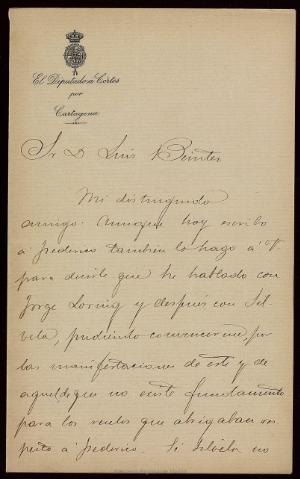 El Diputado a Cortes
por
Cartagena
Sr D Luis
Mi distinguido
amigo: Aunque hoy escribo
á Federico tambien lo hago á V
para decirle que he hablado con
Jorge Loring y después con Sil
vela, pudiendo convencerme, por
las manifestaciones de este y de
aquel de que no existe fundamento
para los que abrigaban res
pecto á Federico. Si Silvela no